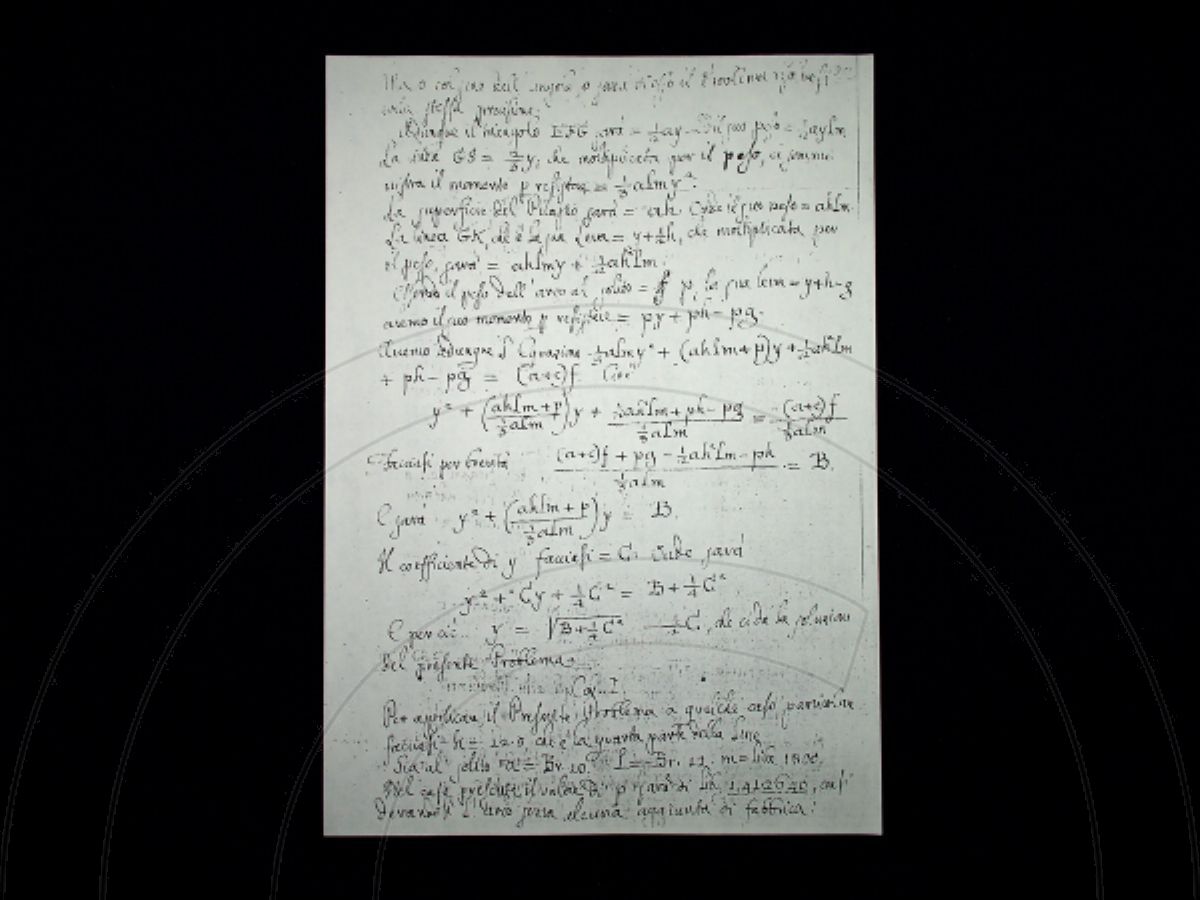 il
della stessa pressione.
Adunque il triangolo EFG sarà = ½ay Ed il suo peso = ½aylm
La linea GS = ⅔y, che moltiplicata per il peso, ci sommi
nistra il momento p resistere = ⅓almy².
La superficie del Pilastro sarà = ah. Onde il suo peso = ahlm.
La linea GK, che è la sua Leva = y+½h, che moltiplicata per
il peso, sarà = ahlmy + ½ah²lm
Essendo il peso dell'arco al solito = p, la sua leva = y+h-g
avremo il suo momento p resistere = py + ph - pg.
Avremo adunque l'Equazione ⅓almy² + (ahlm+p)y + ½ah²lm
+ ph - pg = (a+c)f Cioè
y² + (ahlm+p / ⅓alm)y + ½ah²lm + ph - pg / ⅓alm = (a+c)f / ⅓alm
Facciasi per brevità (a+c)f + pg - ½ah²lm - ph / ⅓alm = B.
E sarà y² + (ahlm+p / ⅓alm)y = B.
Il coefficiente di y facciasi = C. Onde sarà
y² + Cy + ¼C² = B + ¼C²
E per ciò y = √B+¼C² - ½C, che ci dà la soluzione
del presente Problema.
Cap. I.
Per applicare il Presente Problema a qualche caso particolare
facciasi h = 12.0 che è la quarta parte della linea
Sia al solito a = Br. 10. l = Br. m =
Nel caso presente il valore di p sarà di Lib. così
l'arco senza alcuna aggiunta di fabbrica: